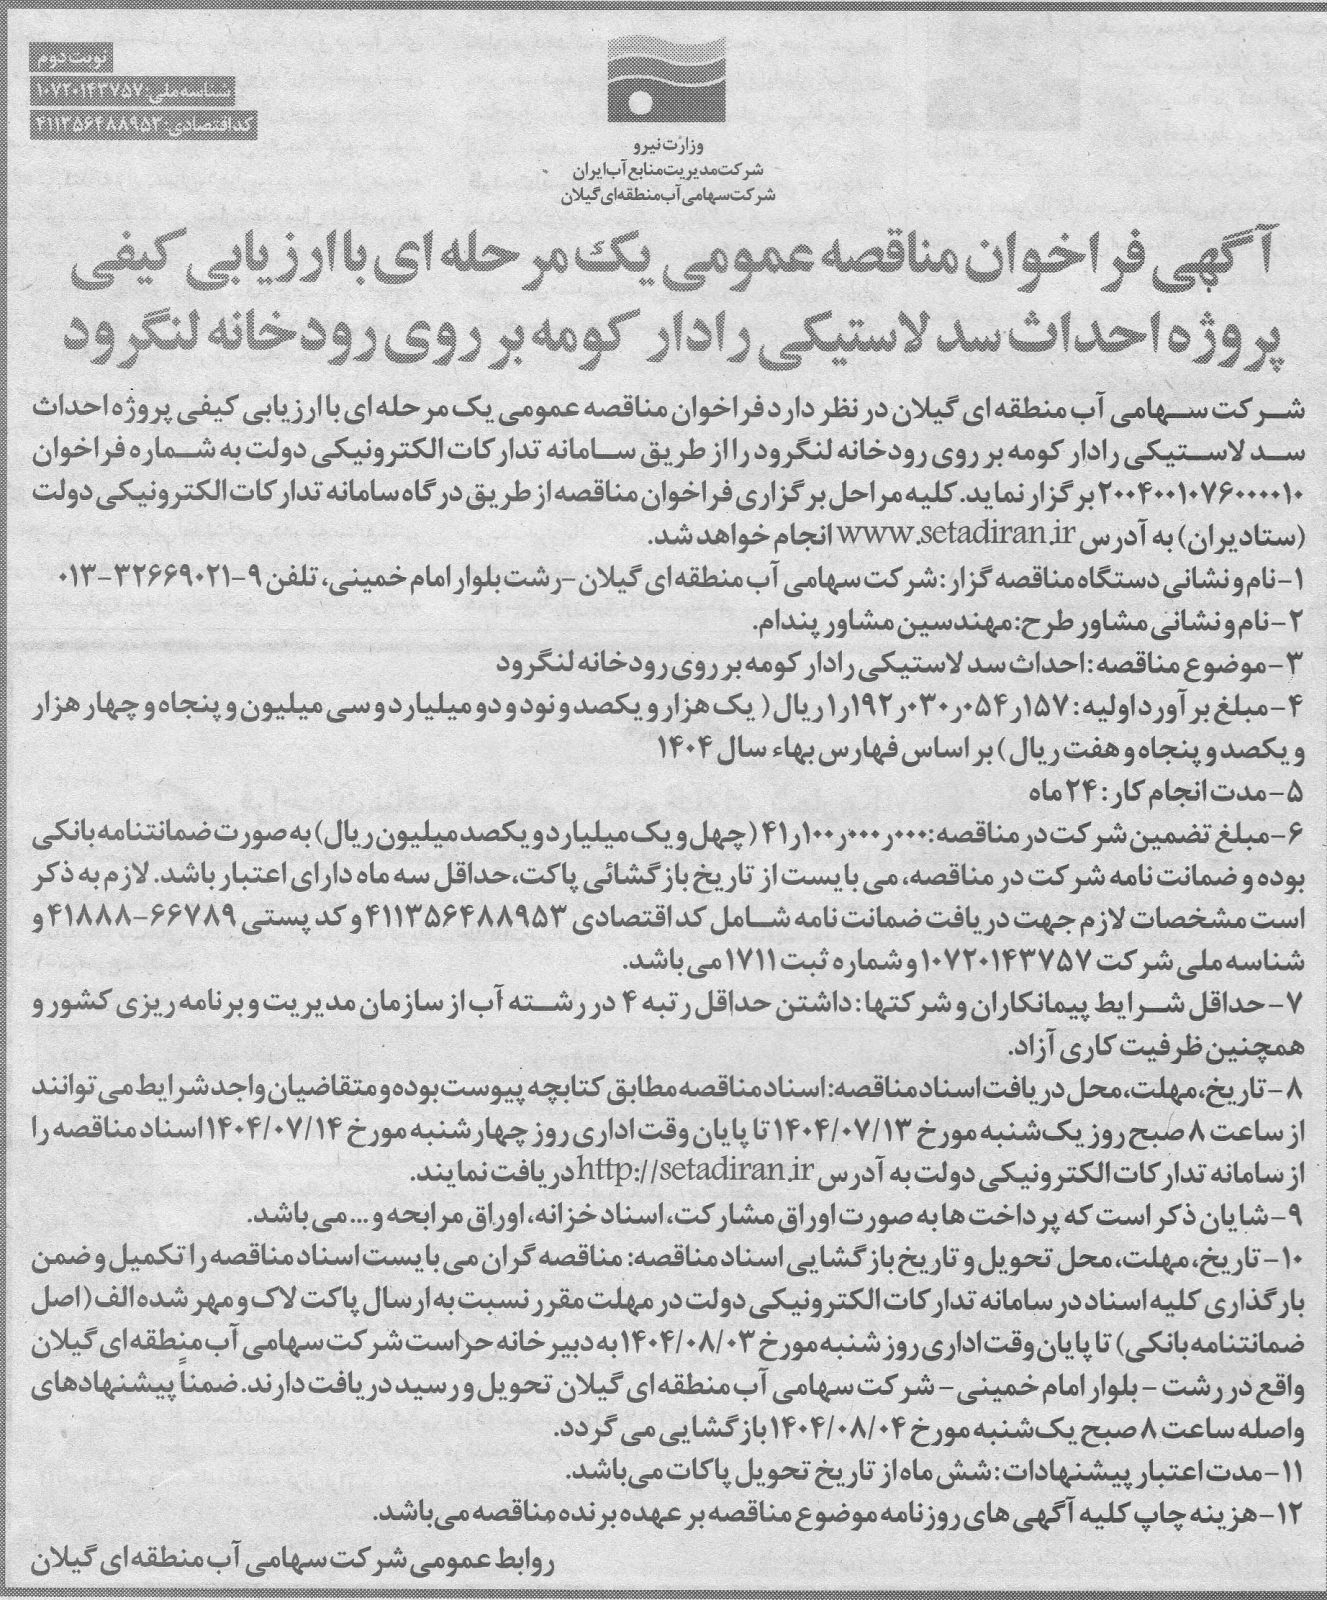 نوبت دوم
شناسه ملی: ۱۰۷۲۰۱۴۳۷۵۷
کد اقتصادی: ۴۱۱۳۵۶۴۸۸۹۵۳
وزارت نیرو
شرکت مدیریت منابع آب ایران
شرکت سهامی آب منطقه ای گیلان
آگهی فراخوان مناقصه عمومی یک مرحله ای با ارزیابی کیفی
پروژه احداث سد لاستیکی رادار کومه بر روی رودخانه لنگرود
شرکت سهامی آب منطقه ای گیلان در نظر دارد فراخوان مناقصه عمومی یک مرحله ای با ارزیابی کیفی پروژه احداث
سد لاستیکی رادار کومه بر روی رودخانه لنگرود را از طریق سامانه تدارکات الکترونیکی دولت به شماره فراخوان
۲۰۰۴۰۰۱۰۷۶۰۰۰۰۱۰ برگزار نماید. کلیه مراحل برگزاری فراخوان مناقصه از طریق درگاه سامانه تدارکات الکترونیکی دولت
(ستاد یران) به آدرس www.setadiran.ir انجام خواهد شد.
۱- نام و نشانی دستگاه مناقصه گزار: شرکت سهامی آب منطقه ای گیلان -رشت بلوار امام خمینی، تلفن ۹-۳۲۶۶۹۰۲۱-۰۱۳
۲- نام و نشانی مشاور طرح: مهندسین مشاور پندام.
۳- موضوع مناقصه: احداث سد لاستیکی رادار کومه بر روی رودخانه لنگرود
۴- مبلغ برآورد اولیه: ۱۵۷ر۰۵۴ر۰۳۰ر۱۹۲ر۱ ریال ( یک هزار و یکصد و نود و دو میلیارد و سی میلیون و پنجاه و چهار هزار
و یکصد و پنجاه و هفت ریال ) بر اساس فهارس بهاء سال ۱۴۰۴
۵- مدت انجام کار: ۲۴ ماه
۶- مبلغ تضمین شرکت در مناقصه: ۰۰۰ر۰۰۰ر۱۰۰ر۴۱ (چهل و یک میلیارد و یکصد میلیون ریال) به صورت ضمانتنامه بانکی
بوده و ضمانت نامه شرکت در مناقصه، می بایست از تاریخ بازگشائی پاکت، حداقل سه ماه دارای اعتبار باشد. لازم به ذکر
است مشخصات لازم جهت دریافت ضمانت نامه شامل کد اقتصادی ۴۱۱۳۵۶۴۸۸۹۵۳ و کد پستی ۶۶۷۸۹-۴۱۸۸۸ و
شناسه ملی شرکت ۱۰۷۲۰۱۴۳۷۵۷ و شماره ثبت ۱۷۱۱ می باشد.
۷- حداقل شرایط پیمانکاران و شرکتها: داشتن حداقل رتبه ۴ در رشته آب از سازمان مدیریت و برنامه ریزی کشور و
همچنین ظرفیت کاری آزاد.
۸- تاریخ، مهلت، محل دریافت اسناد مناقصه: اسناد مناقصه مطابق کتابچه پیوست بوده و متقاضیان واجد شرایط می توانند
از ساعت ۸ صبح روز یک شنبه مورخ ۱۴۰۴/۰۷/۱۳ تا پایان وقت اداری روز چهارشنبه مورخ ۱۴۰۴/۰۷/۱۴ اسناد مناقصه را
از سامانه تدارکات الکترونیکی دولت به آدرس http://setadiran.ir دریافت نمایند.
۹- شایان ذکر است که پرداخت ها به صورت اوراق مشارکت، اسناد خزانه، اوراق مرابحه و ... می باشد.
۱۰- تاریخ، مهلت، محل تحویل و تاریخ بازگشایی اسناد مناقصه: مناقصه گران می بایست اسناد مناقصه را تکمیل و ضمن
بارگذاری کلیه اسناد در سامانه تدارکات الکترونیکی دولت در مهلت مقرر نسبت به ارسال پاکت لاک و مهر شده الف (اصل
ضمانتنامه بانکی) تا پایان وقت اداری روز شنبه مورخ ۱۴۰۴/۰۸/۰۳ به دبیرخانه حراست شرکت سهامی آب منطقه ای گیلان
واقع در رشت - بلوار امام خمینی - شرکت سهامی آب منطقه ای گیلان تحویل و رسید دریافت دارند. ضمناً پیشنهادهای
واصله ساعت ۸ صبح یک شنبه مورخ ۱۴۰۴/۰۸/۰۴ بازگشایی می گردد.
۱۱- مدت اعتبار پیشنهادات: شش ماه از تاریخ تحویل پاکات می باشد.
۱۲- هزینه چاپ کلیه آگهی های روزنامه موضوع مناقصه بر عهده برنده مناقصه می باشد.
روابط عمومی شرکت سهامی آب منطقه ای گیلان